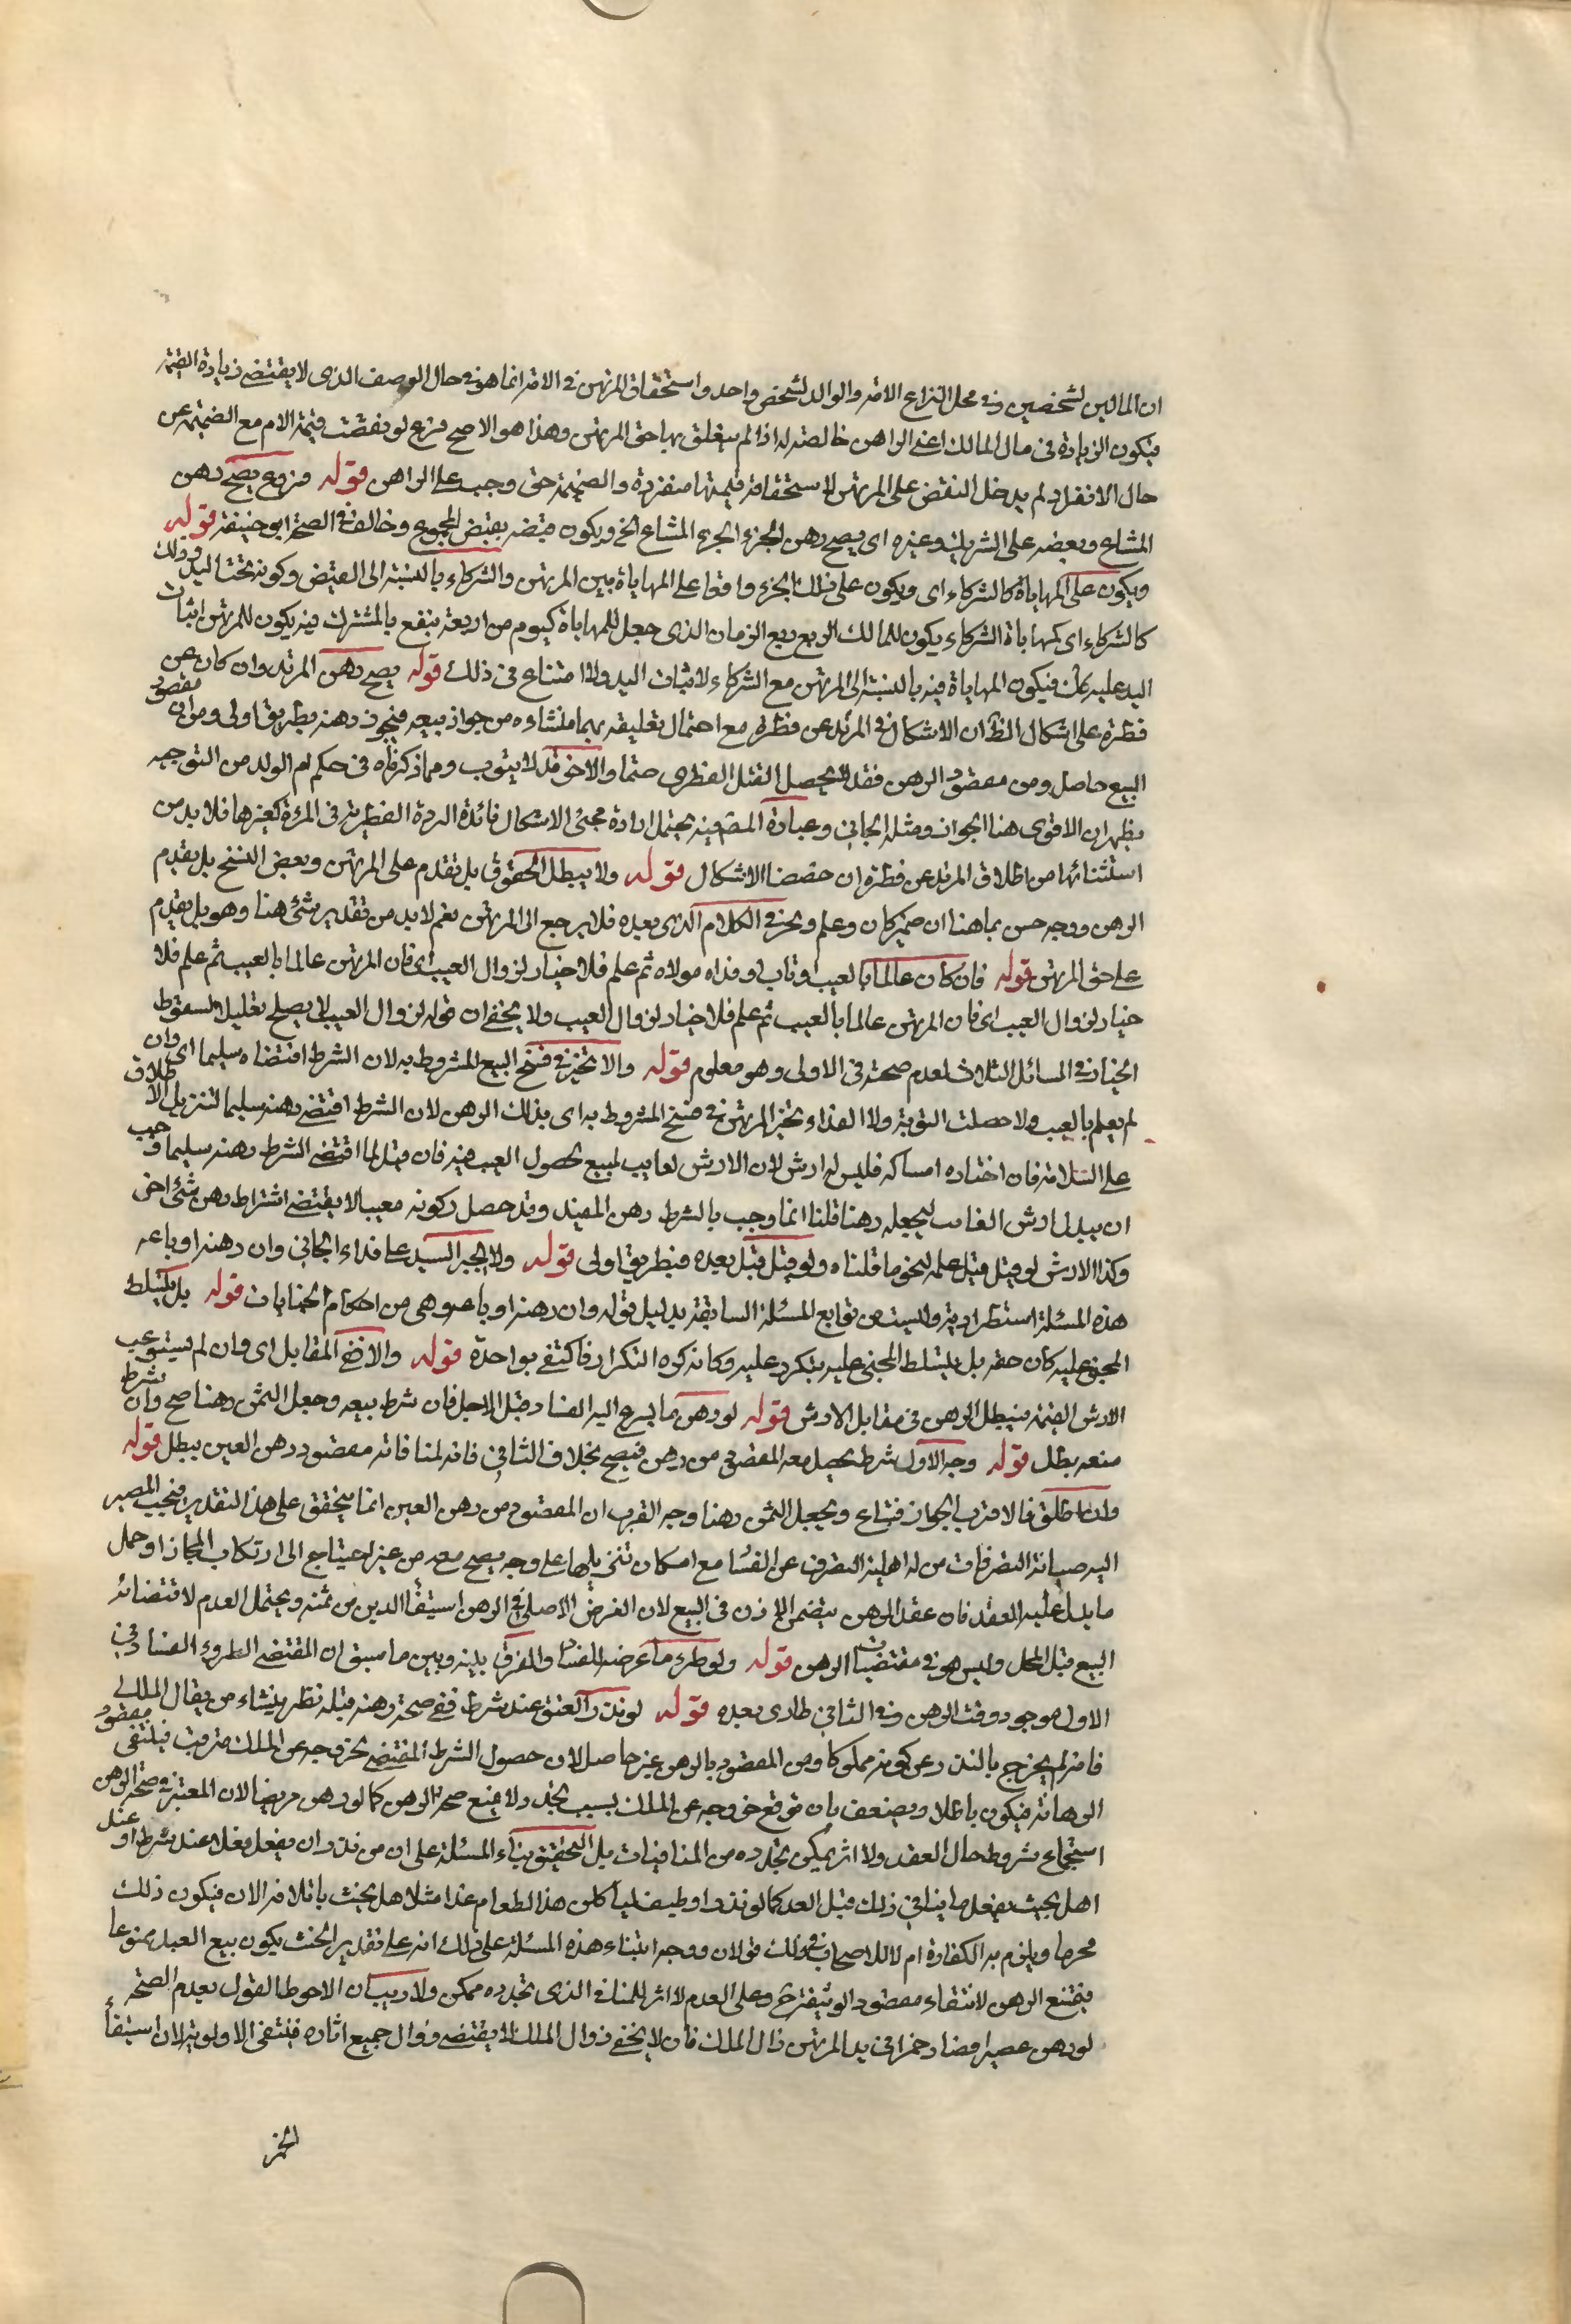 ان المالين لشخصين وفى محل النزاع الامة والولد لشخص واحد واستحقاق المرتهن فى الامة انما هو فى حال الوصف الذى لا يقتضى زيادة القيمة
فيكون الزيادة فى مال المالك اعنى الراهن خالصة له اذا لم يتعلق بها حق المرتهن وهذا هو الاصح فرع لو نقصت قيمة الام مع الضميمة عن
حال الانفراد لم يدخل النقص على المرتهن لاستحقاقه قيمتها منفردة والضميمة حق وجب على الراهن قوله فروع يصح رهن
المشاع وبعضه على الشريك وغيره اى يصح رهن الجزء المشاع الخ ويكون قبضه بقبض المجموع وخالف فى الصحة ابو حنيفة قوله
ويكون على المهاياة كالشركاء اى ويكون على ذلك الجزء واقعا على المهاياة بين المرتهن والشركاء بالنسبة الى القبض وكونه تحت اليد وذلك
كالشركاء اى كمهاياة الشركاء يكون للمالك الربع ربع الزمان الذى جعل للمهاياة كيوم من اربعة ينتفع بالمشترك فيه يكون للمرتهن اثبات
اليد عليه فيكون المهاياة فيه بالنسبة الى المرتهن مع الشركاء لاثبات اليد ولا امتناع فى ذلك قوله يصح رهن المرتد وان كان عن
فطرة على اشكال الظ ان الاشكال فى المرتد عن فطرة مع احتمال تعليقه بهما منشاءه من جواز بيعه فيجوز رهنه بطريق اولى ومن ان مقصود
البيع حاصل ومن مقصود الرهن فقد لا يحصل القتل الفطرى حتما والاخر قد لا يتوب ومما ذكرناه فى حكم ام الولد من التوجيه
يظهر ان الاقوى هنا الجواز ومثله الجانى وعبارة المصنف فيه يحتمل ارادة مجئ الاشكال فائدة الردة الفطرية فى المرءة كغيرها فلا بد من
استثنائها من اطلاق المرتد عن فطرة ان خصصنا الاشكال قوله ولا يبطل الحقوق بل تقدم على المرتهن وبعض النسخ بل يقدم
الرهن ووجه حسن بما هنا ان ضمير كان وعلم ويخير فى الكلام الذى بعده فلا يرجع الى المرتهن نعم لا بد من تقدير شئ هنا وهو بل يقدم
على حق المرتهن قوله فان كان عالما بالعيب او تاب او فداه مولاه ثم علم فلا خيار لزوال العيب اى فان المرتهن عالما بالعيب ثم علم فلا
خيار لزوال العيب اى فان المرتهن عالما بالعيب ثم علم فلا خيار لزوال العيب ولا يخفى ان قوله لزوال العيب لا يصلح تعليلا لسقوط
الخيار فى المسائل الثلاث لعدم صحته فى الاولى وهو معلوم قوله والا تخير فى فسخ البيع المشروط به لان الشرط اقتضاه سليما اى وان
لم يعلم بالعيب ولا حصلت التوبة ولا الفداء تخير المرتهن فى فسخ المشروط به اى بذلك الرهن لان الشرط اقتضى رهنه سليما لتنزيل الاطلاق
على السلامة فان اختاره امساكه فليس له ارش لان الارش لعايب لمبيع لحصول العيب فيه فان قيل لما اقتضى الشرط رهنه سليما وجب
ان يبذل ارش الفائت ليجعله رهنا قلنا انما وجب بالشرط رهن المقيد وقد حصل وكونه معيبا لا يقتضى اشتراط رهن شئ اخر
وكذا الارش لو قيل قبل علمه لنحو ما قلناه ولو قيل قبل بعده فبطريق اولى قوله ولا يجبر السيد على فداء الجانى وان رهنه او باعه
هذه المسئلة استطرادية وليست من توابع المسئلة السابقة بدليل قوله وان رهنه او باعه وهى من احكام الجنايات قوله بل يتسلط
المجنى عليه كان حقه بل يتسلط المجنى عليه بتكرر عليه وكانه كره التكرار فاكتفى بواحدة قوله والا فسخ المقابل اى وان لم يستوعب
الارش القيمة فيبطل الرهن فى مقابل الارش قوله لو رهن ما يسرع اليه الفساد قبل الاجل فان شرط بيعه وجعل الثمن رهنا صح وان شرط
منعه بطل قوله وجه الاول شرط يحصل معه المقصود من رهن فيصح بخلاف الثانى فانه لمنافاته مقصود رهن العين يبطل قوله
وان اطلق فالاقرب الجواز فيباع ويجعل الثمن رهنا وجه القرب ان المقصود من رهن العين انما يتحقق على هذا التقدير فيجب المصير
اليه صيانة التصرفات من له اهلية التصرف عن الفساد مع امكان تنزيلها على وجه يصح معه من غير احتياج الى ارتكاب المجاز او حمل
ما يدل عليه العقد فان عقد الرهن يتضمن الاذن فى البيع لان الغرض الاصلى فى الرهن استيفا الدين من ثمنه ويحتمل العدم لاقتضائه
البيع قبل المحل وليس هو فى مقتضيات الرهن قوله ولو طرء ما عرضه للفساد والفرق بينه وبين ما سبق ان المقتضى الطروء الفساد فى
الاول موجود وقت الرهن وفى الثانى طارى بعده قوله لو نذر العتق عند شرط ففى صحة رهنه قبله نظر ينشاء من بقال الملك
فانه لم يخرج بالنذر عن كونه مملوكا ومن المقصود بالرهن غير حاصل لان حصول الشرط المقتضى لخروجه عن الملك مترقب فينتفى مقصود
الرهانة فيكون باطلا ويضعف بان توقع خروجه عن الملك بسبب يتجدد لا يمنع صحة الرهن كما لو رهن مريضا لان المعتبر فى صحة الرهن
استجماع شروط حال العقد ولا اثر يمكن تجدده من المنافيات بل التحقيق بناء المسئلة على ان من نذر ان يفعل فعلا عند شرط او عند
اهل يحنث بفعل ما ينافى ذلك قبل العد كما لو نذر او حلف لياكلن هذا الطعام غدا مثلا هل يحنث باتلافه الان فيكون ذلك
محرما ويلزم به الكفارة ام لا للاصحاب فى ذلك قولان ووجه ابتناء هذه المسئلة على ذلك انه على تقدير الحنث يكون بيع العبد ممنوعا
فيمتنع الرهن لانتفاء مقصود الوثيقة ح وعلى العدم لا اثر للمنافى الذى تجدده ممكن ولا ريب ان الاحوط القول بعدم الصحة
لو رهن عصيرا فصار خمرا فى يد المرتهن زال الملك فان لا يخفى زوال الملك لا يقتضى زوال جميع اثاره فينتفى الاولوية لان استيفأ
الخمر